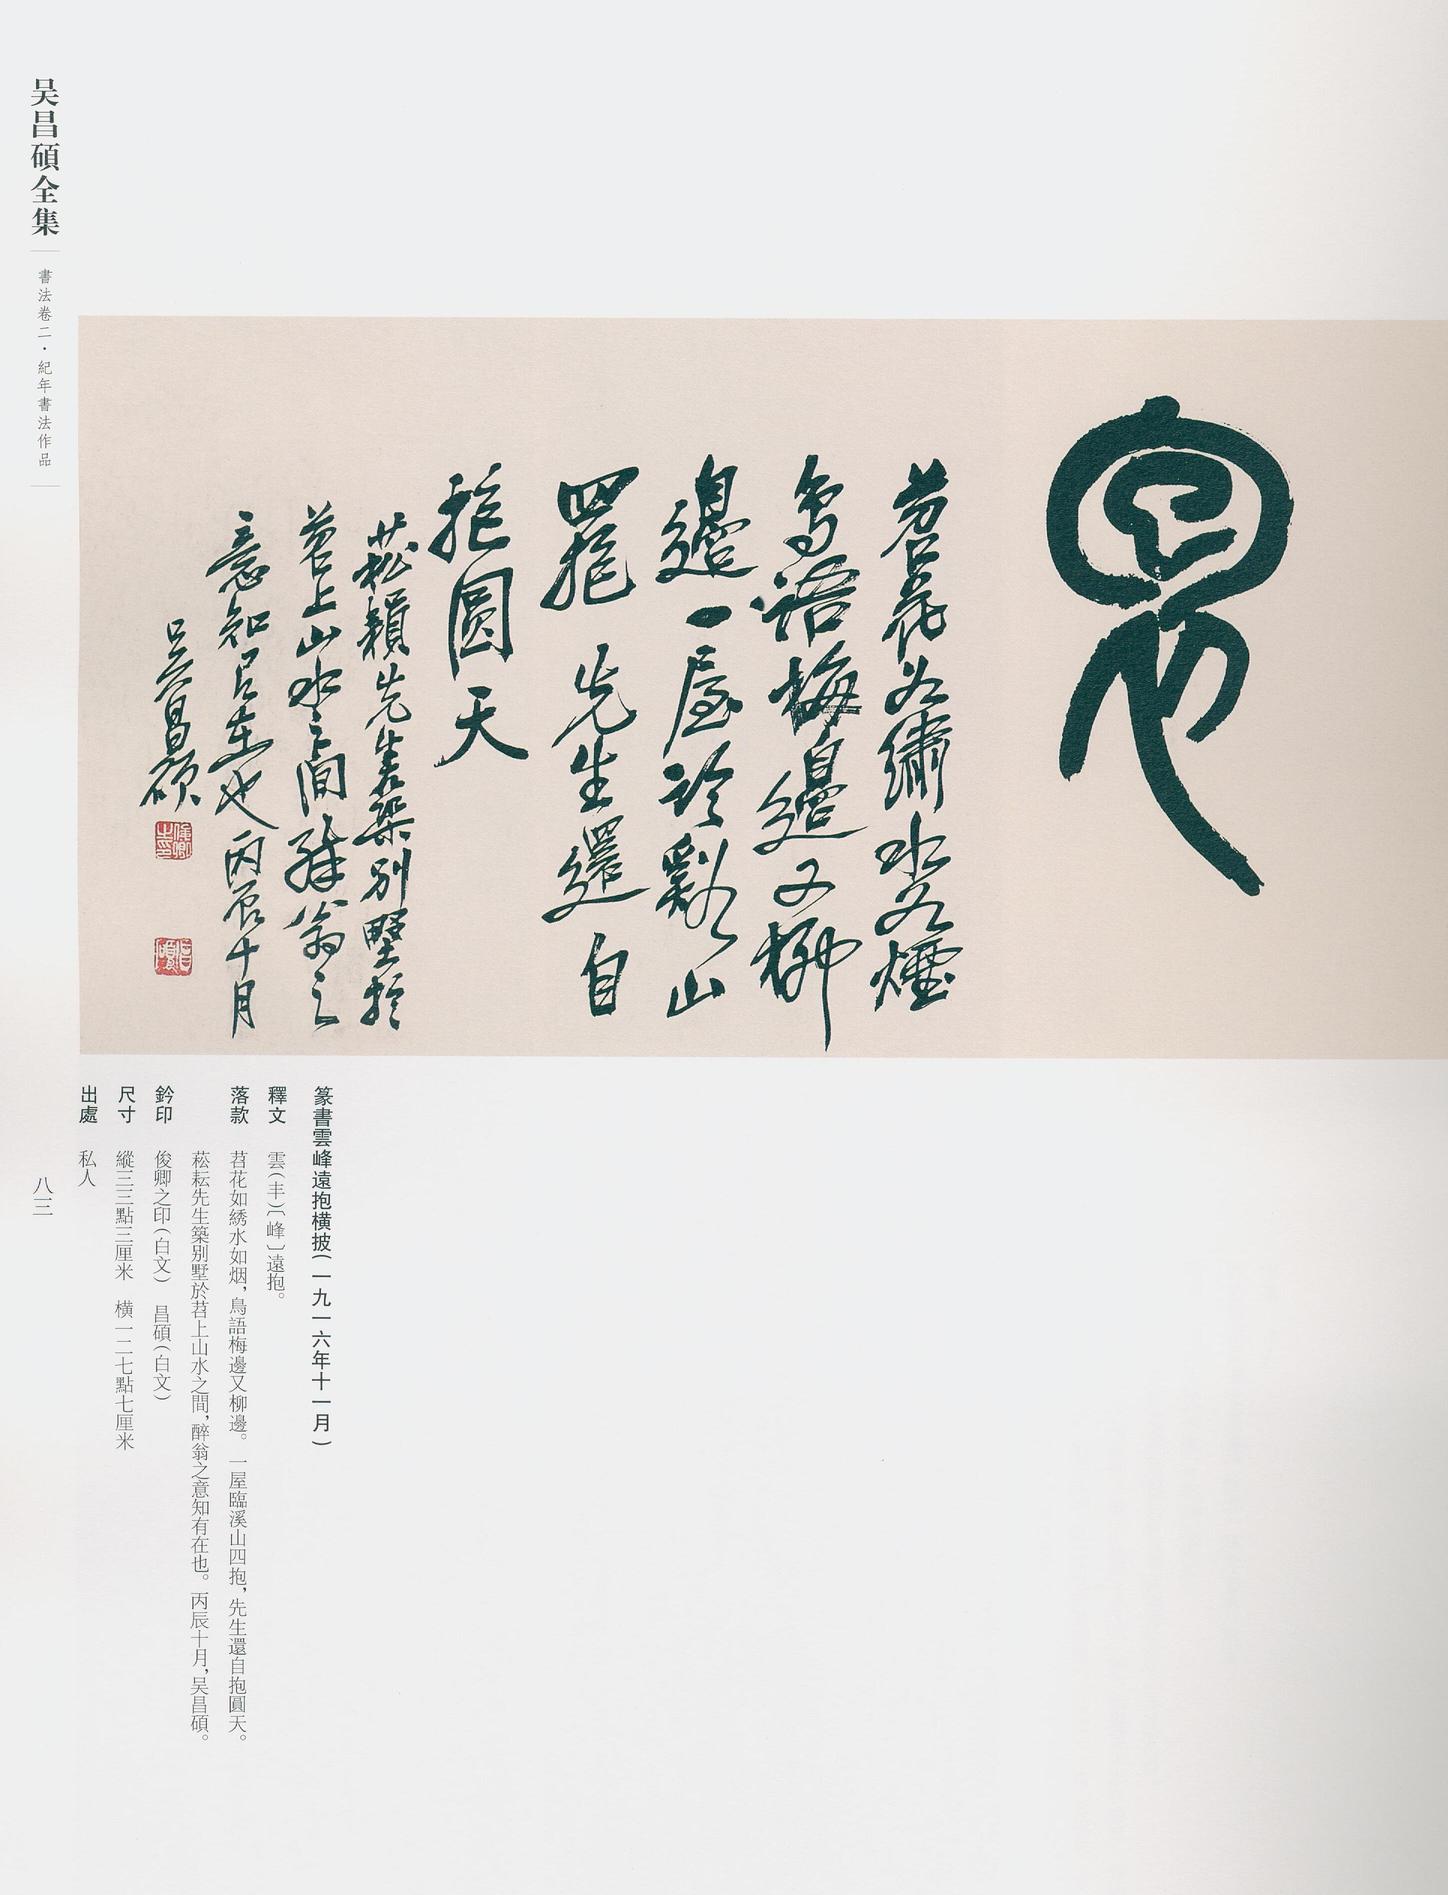 苕花如繡水如煙
鳥語梅邊又柳
邊一屋臨谿山
四抱先生還自
抱圓天
菘先生築別墅於
苕上山水之間醉翁之
意知有在也丙辰十月
吳昌碩
俊卿之印
昌碩
篆書雲峰遠抱橫披(一九一六年十一月)
釋文 雲(丰)〔峰〕遠抱。
落款 苕花如綉水如烟,鳥語梅邊又柳邊。一屋臨溪山四抱,先生還自抱圓天。
菘耘先生築别墅於苕上山水之間,醉翁之意知有在也。丙辰十月,吴昌碩。
鈐印 俊卿之印(白文) 昌碩(白文)
尺寸 縱三三點三厘米 橫一二七點七厘米
出處 私人
吴昌碩全集
書法卷二·紀年書法作品
八三